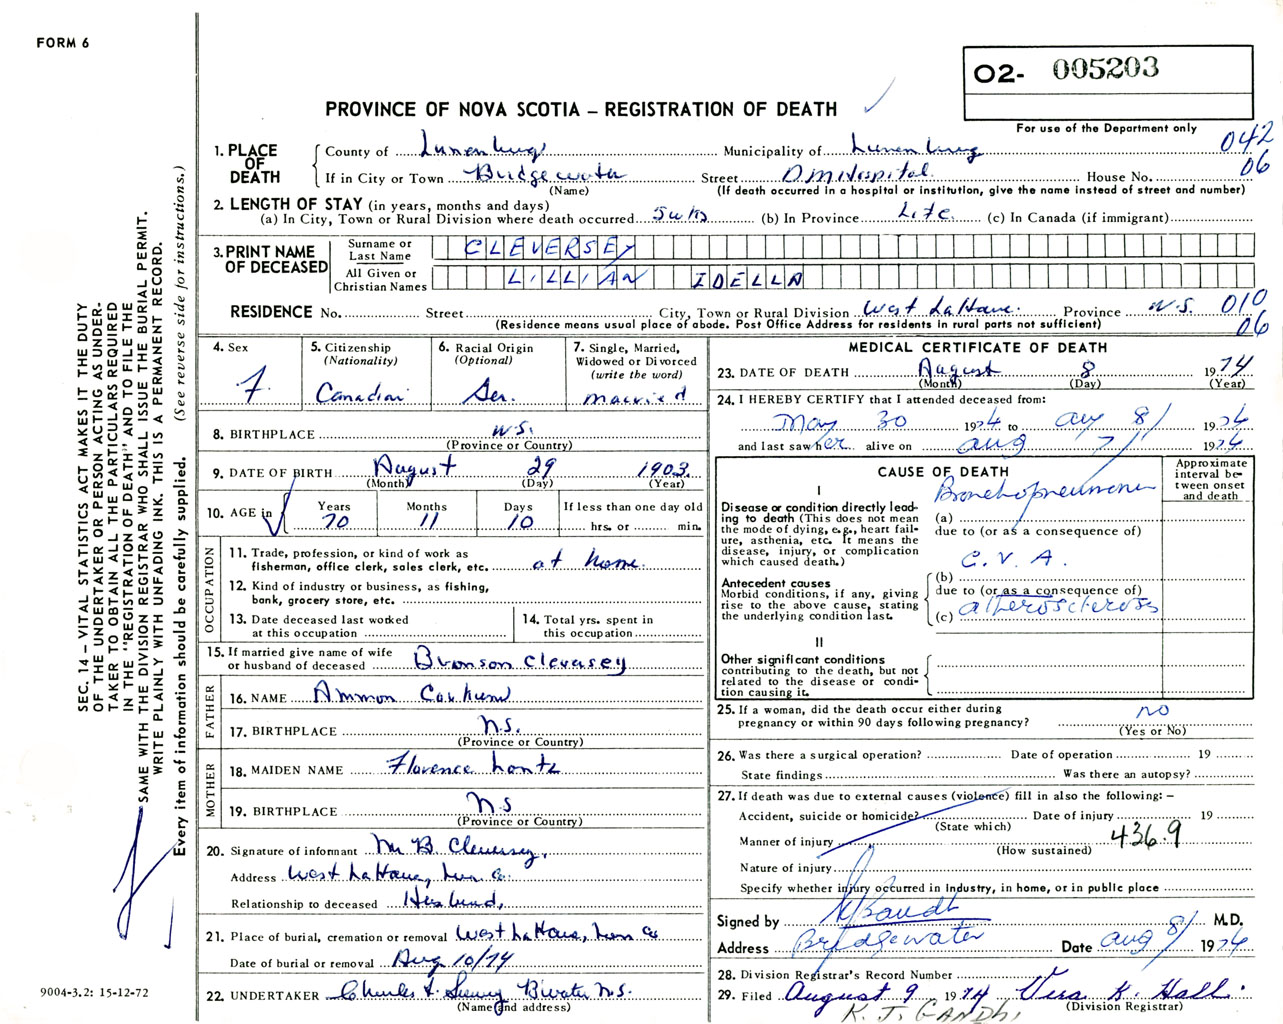 FORM 6
O2- 005203
PROVINCE OF NOVA SCOTIA – REGISTRATION OF DEATH
For use of the Department only
042
06
1. PLACE OF DEATH
County of Lunenburg Municipality of Lunenburg
If in City or Town Bridgewater Street D M Hospital House No.
(Name) (If death occurred in a hospital or institution, give the name instead of street and number)
2. LENGTH OF STAY (in years, months and days)
(a) In City, Town or Rural Division where death occurred 5 wks (b) In Province Life (c) In Canada (if immigrant)
3. PRINT NAME OF DECEASED
Surname or Last Name CLEVERSEY
All Given or Christian Names LILLIAN IDELLA
RESIDENCE No. Street City, Town or Rural Division West LaHave Province N.S. 010
06
(Residence means usual place of abode. Post Office Address for residents in rural parts not sufficient)
4. Sex F.
5. Citizenship (Nationality) Canadian
6. Racial Origin (Optional) Ger.
7. Single, Married, Widowed or Divorced (write the word) married
8. BIRTHPLACE N.S.
(Province or Country)
9. DATE OF BIRTH August 29 1903
(Month) (Day) (Year)
10. AGE in Years 70 Months 11 Days 10 If less than one day old hrs. or min.
OCCUPATION
11. Trade, profession, or kind of work as fisherman, office clerk, sales clerk, etc. at home
12. Kind of industry or business, as fishing, bank, grocery store, etc.
13. Date deceased last worked at this occupation
14. Total yrs. spent in this occupation
15. If married give name of wife or husband of deceased Bronson Cleversey
FATHER
16. NAME Ammon Corkum
17. BIRTHPLACE N.S.
(Province or Country)
MOTHER
18. MAIDEN NAME Florence Lantz
19. BIRTHPLACE N S
(Province or Country)
20. Signature of informant M B Cleversey,
Address West LaHave, Lun Co.
Relationship to deceased Husband,
21. Place of burial, cremation or removal West LaHave, Lun Co
Date of burial or removal Aug 10/74
22. UNDERTAKER Charles B'water N.S.
(Name and address)
MEDICAL CERTIFICATE OF DEATH
23. DATE OF DEATH August 8 1974
(Month) (Day) (Year)
24. I HEREBY CERTIFY that I attended deceased from:
May 30 1974 to Aug 8/ 1974
and last saw her alive on Aug 7/ 1974
CAUSE OF DEATH
Approximate interval between onset and death
I
Disease or condition directly leading to death (This does not mean the mode of dying, e.g., heart failure, asthenia, etc. It means the disease, injury, or complication which caused death.)
Bronchopneumonia
(a)
due to (or as a consequence of)
C. V. A.
Antecedent causes
Morbid conditions, if any, giving rise to the above cause, stating the underlying condition last.
(b)
due to (or as a consequence of)
(c) atherosclerosis
II
Other significant conditions contributing to the death, but not related to the disease or condition causing it.
25. If a woman, did the death occur either during pregnancy or within 90 days following pregnancy? no
(Yes or No)
26. Was there a surgical operation? Date of operation 19
State findings Was there an autopsy?
27. If death was due to external causes (violence) fill in also the following: –
Accident, suicide or homicide? Date of injury 19
(State which)
Manner of injury 436.9
(How sustained)
Nature of injury
Specify whether injury occurred in Industry, in home, or in public place
Signed by KJGandhi M.D.
Address Bridgewater Date Aug 8/ 1974
28. Division Registrar's Record Number
29. Filed August 9 1974 Vera K. Hall
(Division Registrar)
K. J. GANDHI
SEC. 14 – VITAL STATISTICS ACT MAKES IT THE DUTY
OF THE UNDERTAKER OR PERSON ACTING AS UNDER-
TAKER TO OBTAIN ALL THE PARTICULARS REQUIRED
IN THE "REGISTRATION OF DEATH" AND TO FILE THE
SAME WITH THE DIVISION REGISTRAR WHO SHALL ISSUE THE BURIAL PERMIT.
WRITE PLAINLY WITH UNFADING INK. THIS IS A PERMANENT RECORD.
Every item of information should be carefully supplied. (See reverse side for instructions.)
9004-3.2: 15-12-72